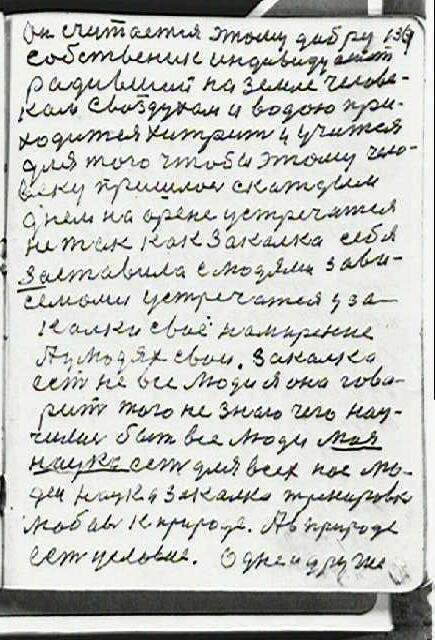 Он считается этому добру 139
собственик индивидуалист
радившийся на земле челове-
кам своздухам и водою при-
ходится хитрит и учится
для того чтобы этому чело-
веку пришлос скаждым
днем на арене устречатся
не так как Закалка себя
Заставила с людями зави-
семоми устречатся у за-
калки своё намирение
А у людях свои. Закалка
ест не все люди я она гова-
рит того не знаю чего нау-
чилас быт все люди моя
наука ест для всех нас лю-
дей наука закалка тренировка
любов к природе. А в природе
ест условие. Одне и другие